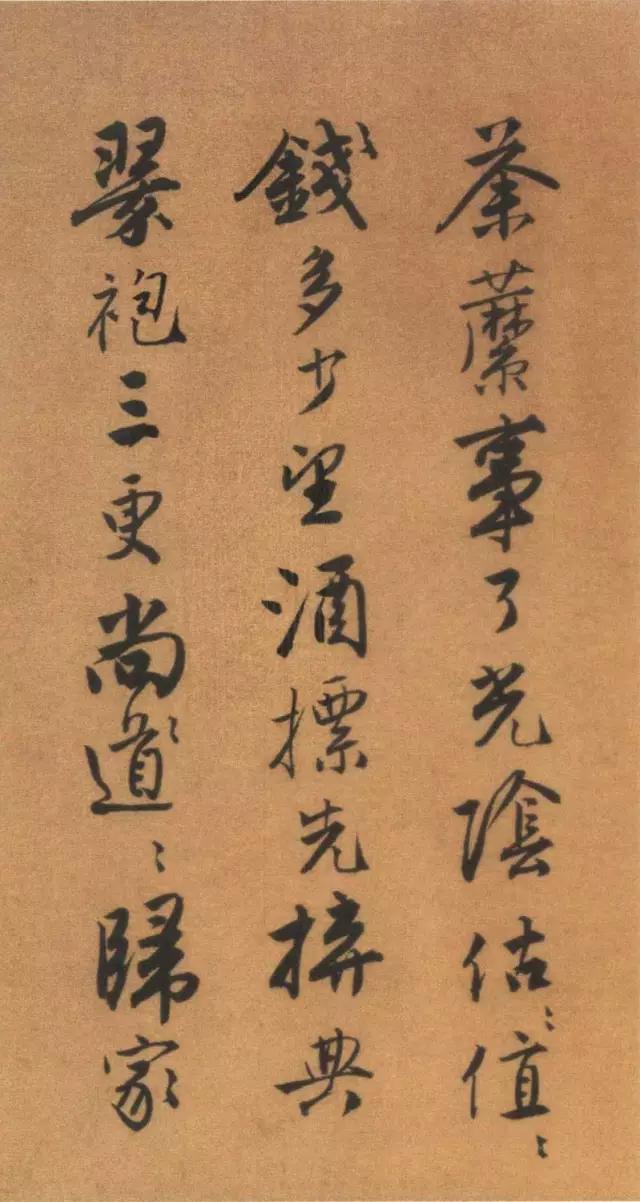 荼蘼事了光陰估〻值〻
錢〻多少望酒摽先拚典
翠袍三更尚〻道〻歸家